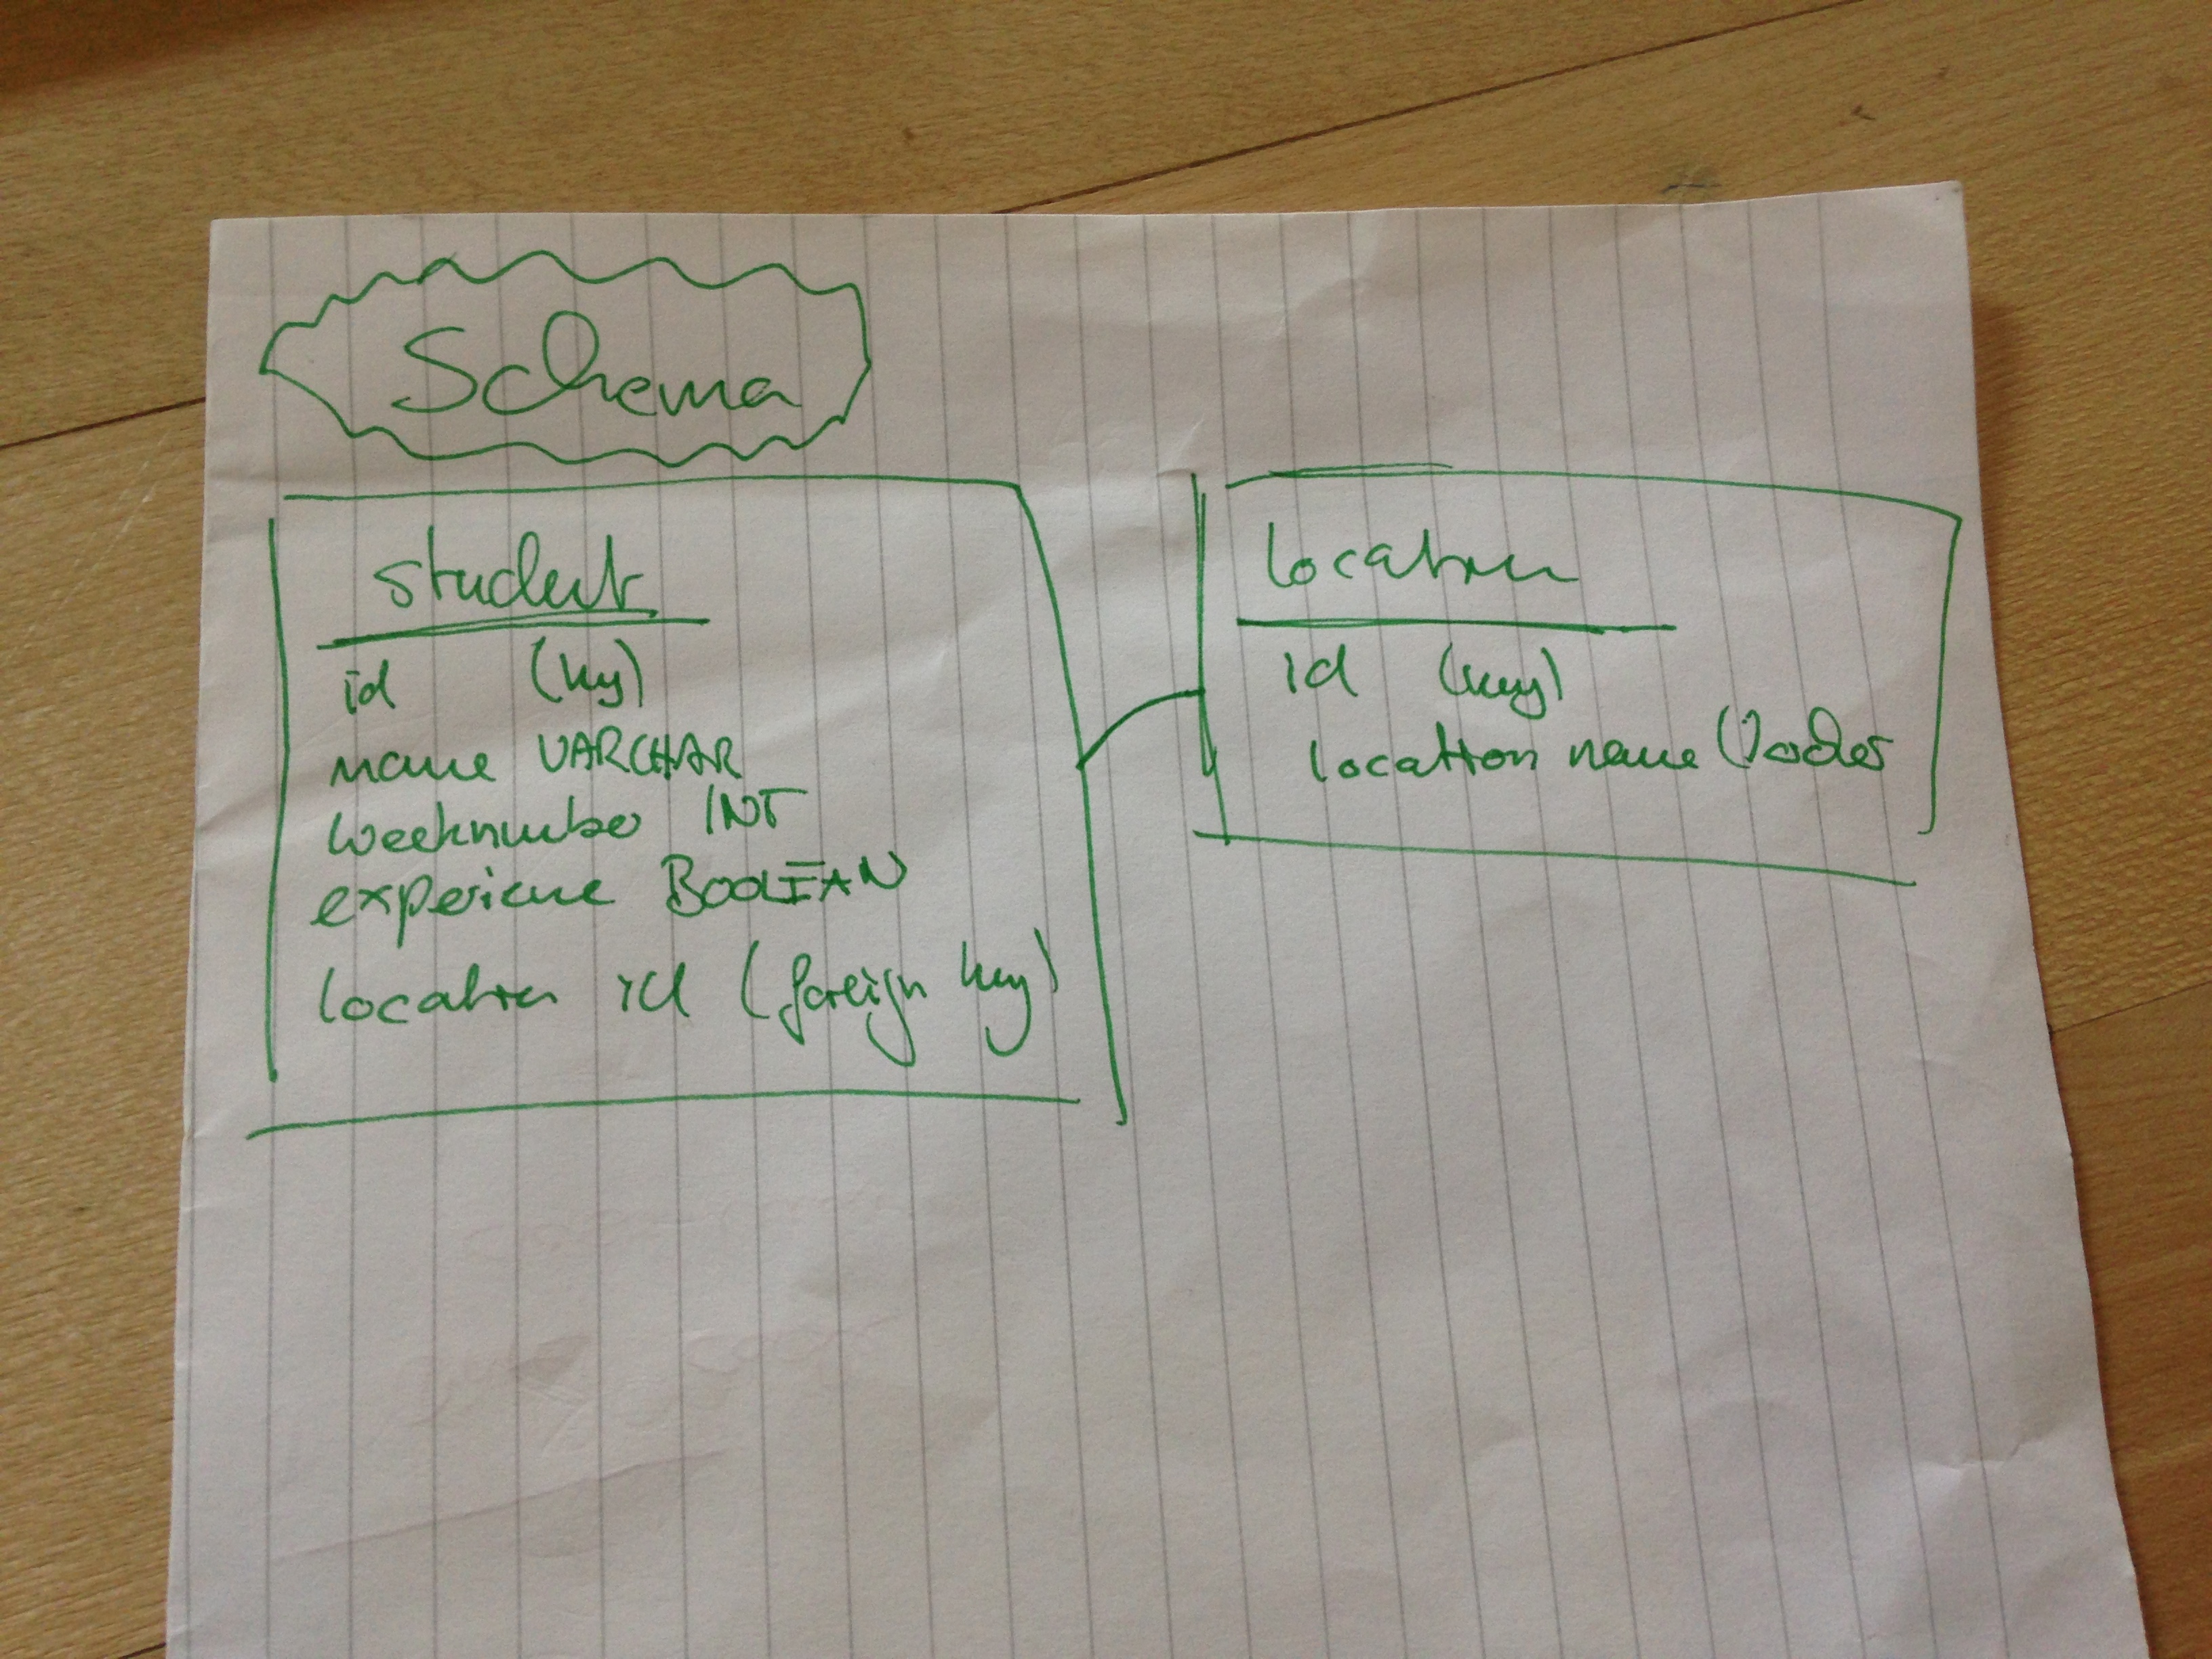 Schema
student
id (key)
name VARCHAR
weeknumber INT
experience BOOLEAN
location id (foreign key)
location
id (key)
location name